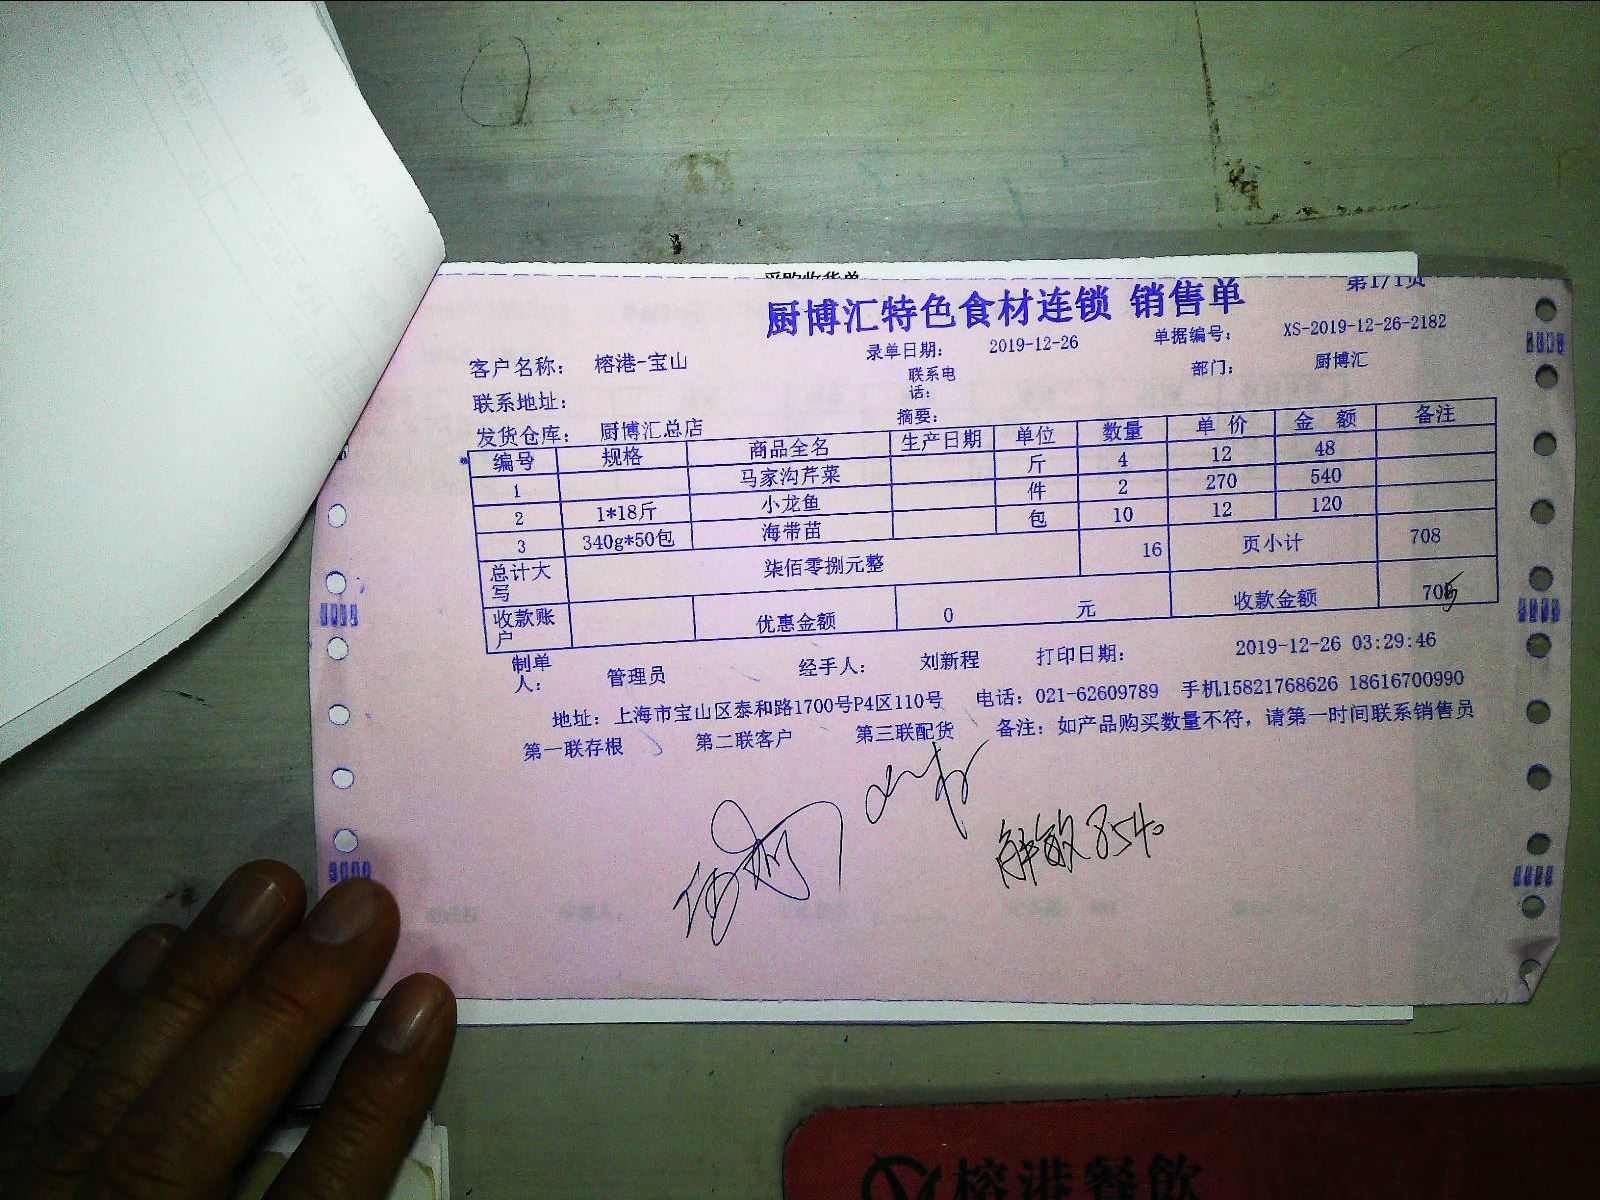 采购收货单
第1/1页
厨博汇特色食材连锁 销售单
客户名称： 榕港-宝山 录单日期： 2019-12-26 单据编号： XS-2019-12-26-2182
联系地址： 联系电话： 部门： 厨博汇
发货仓库： 厨博汇总店 摘要：
编号 规格 商品全名 生产日期 单位 数量 单 价 金 额 备注
1 马家沟芹菜 斤 4 12 48
2 1*18斤 小龙鱼 件 2 270 540
3 340g*50包 海带苗 包 10 12 120
总计大写 柒佰零捌元整 16 页小计 708
收款账户 优惠金额 0 元 收款金额 708
制单人： 管理员 经手人： 刘新程 打印日期： 2019-12-26 03:29:46
地址：上海市宝山区泰和路1700号P4区110号 电话：021-62609789 手机15821768626 18616700990
第一联存根 第二联客户 第三联配货 备注：如产品购买数量不符，请第一时间联系销售员
榕港餐飲